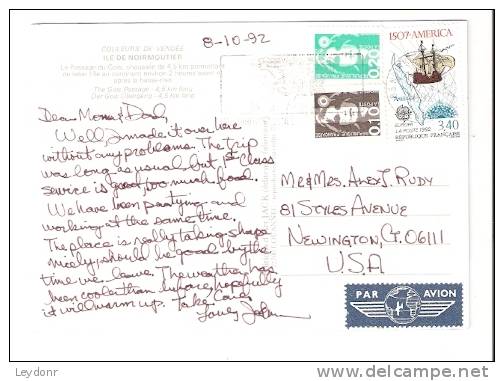 8-10-92
COULEURS DE VENDÉE
ILE DE NOIRMOUTIER
Le Passage du Gois, chaussée de 4,5 km permettant
de relier l'île au continent environ 2 heures avant et
après la basse-mer.
The Gois Passage - 4,5 km
Der Gois Übergang - 4,5 km
RÉPUBLIQUE FRANÇAISE
LA POSTE
0,20
RÉPUBLIQUE FRANÇAISE
LA POSTE
0,10
1507-AMERICA
America
EUROPA
LA POSTE 1992
3,40
RÉPUBLIQUE FRANÇAISE
Dear Mom & Dad,
Well, I made it over here
without any problems. The trip
was long as usual, but 1st class
service is good, too much food.
We have been partying and
working at the same time.
The place is really taking shape
nicely, should be good by the
time we leave. The weather has
been cooler than before, hopefully
it will warm up. Take Care
Love, John
MR & MRS. ALEX J. RUDY
81 STYLES AVENUE
NEWINGTON, CT. 06111
U.S.A
PAR AVION
Leydonr
delcampe.net